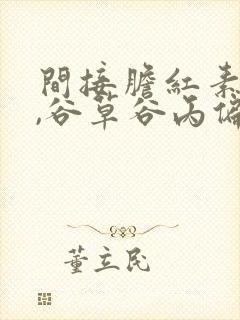 間接膽紅素
,谷草谷丙偏
董立民